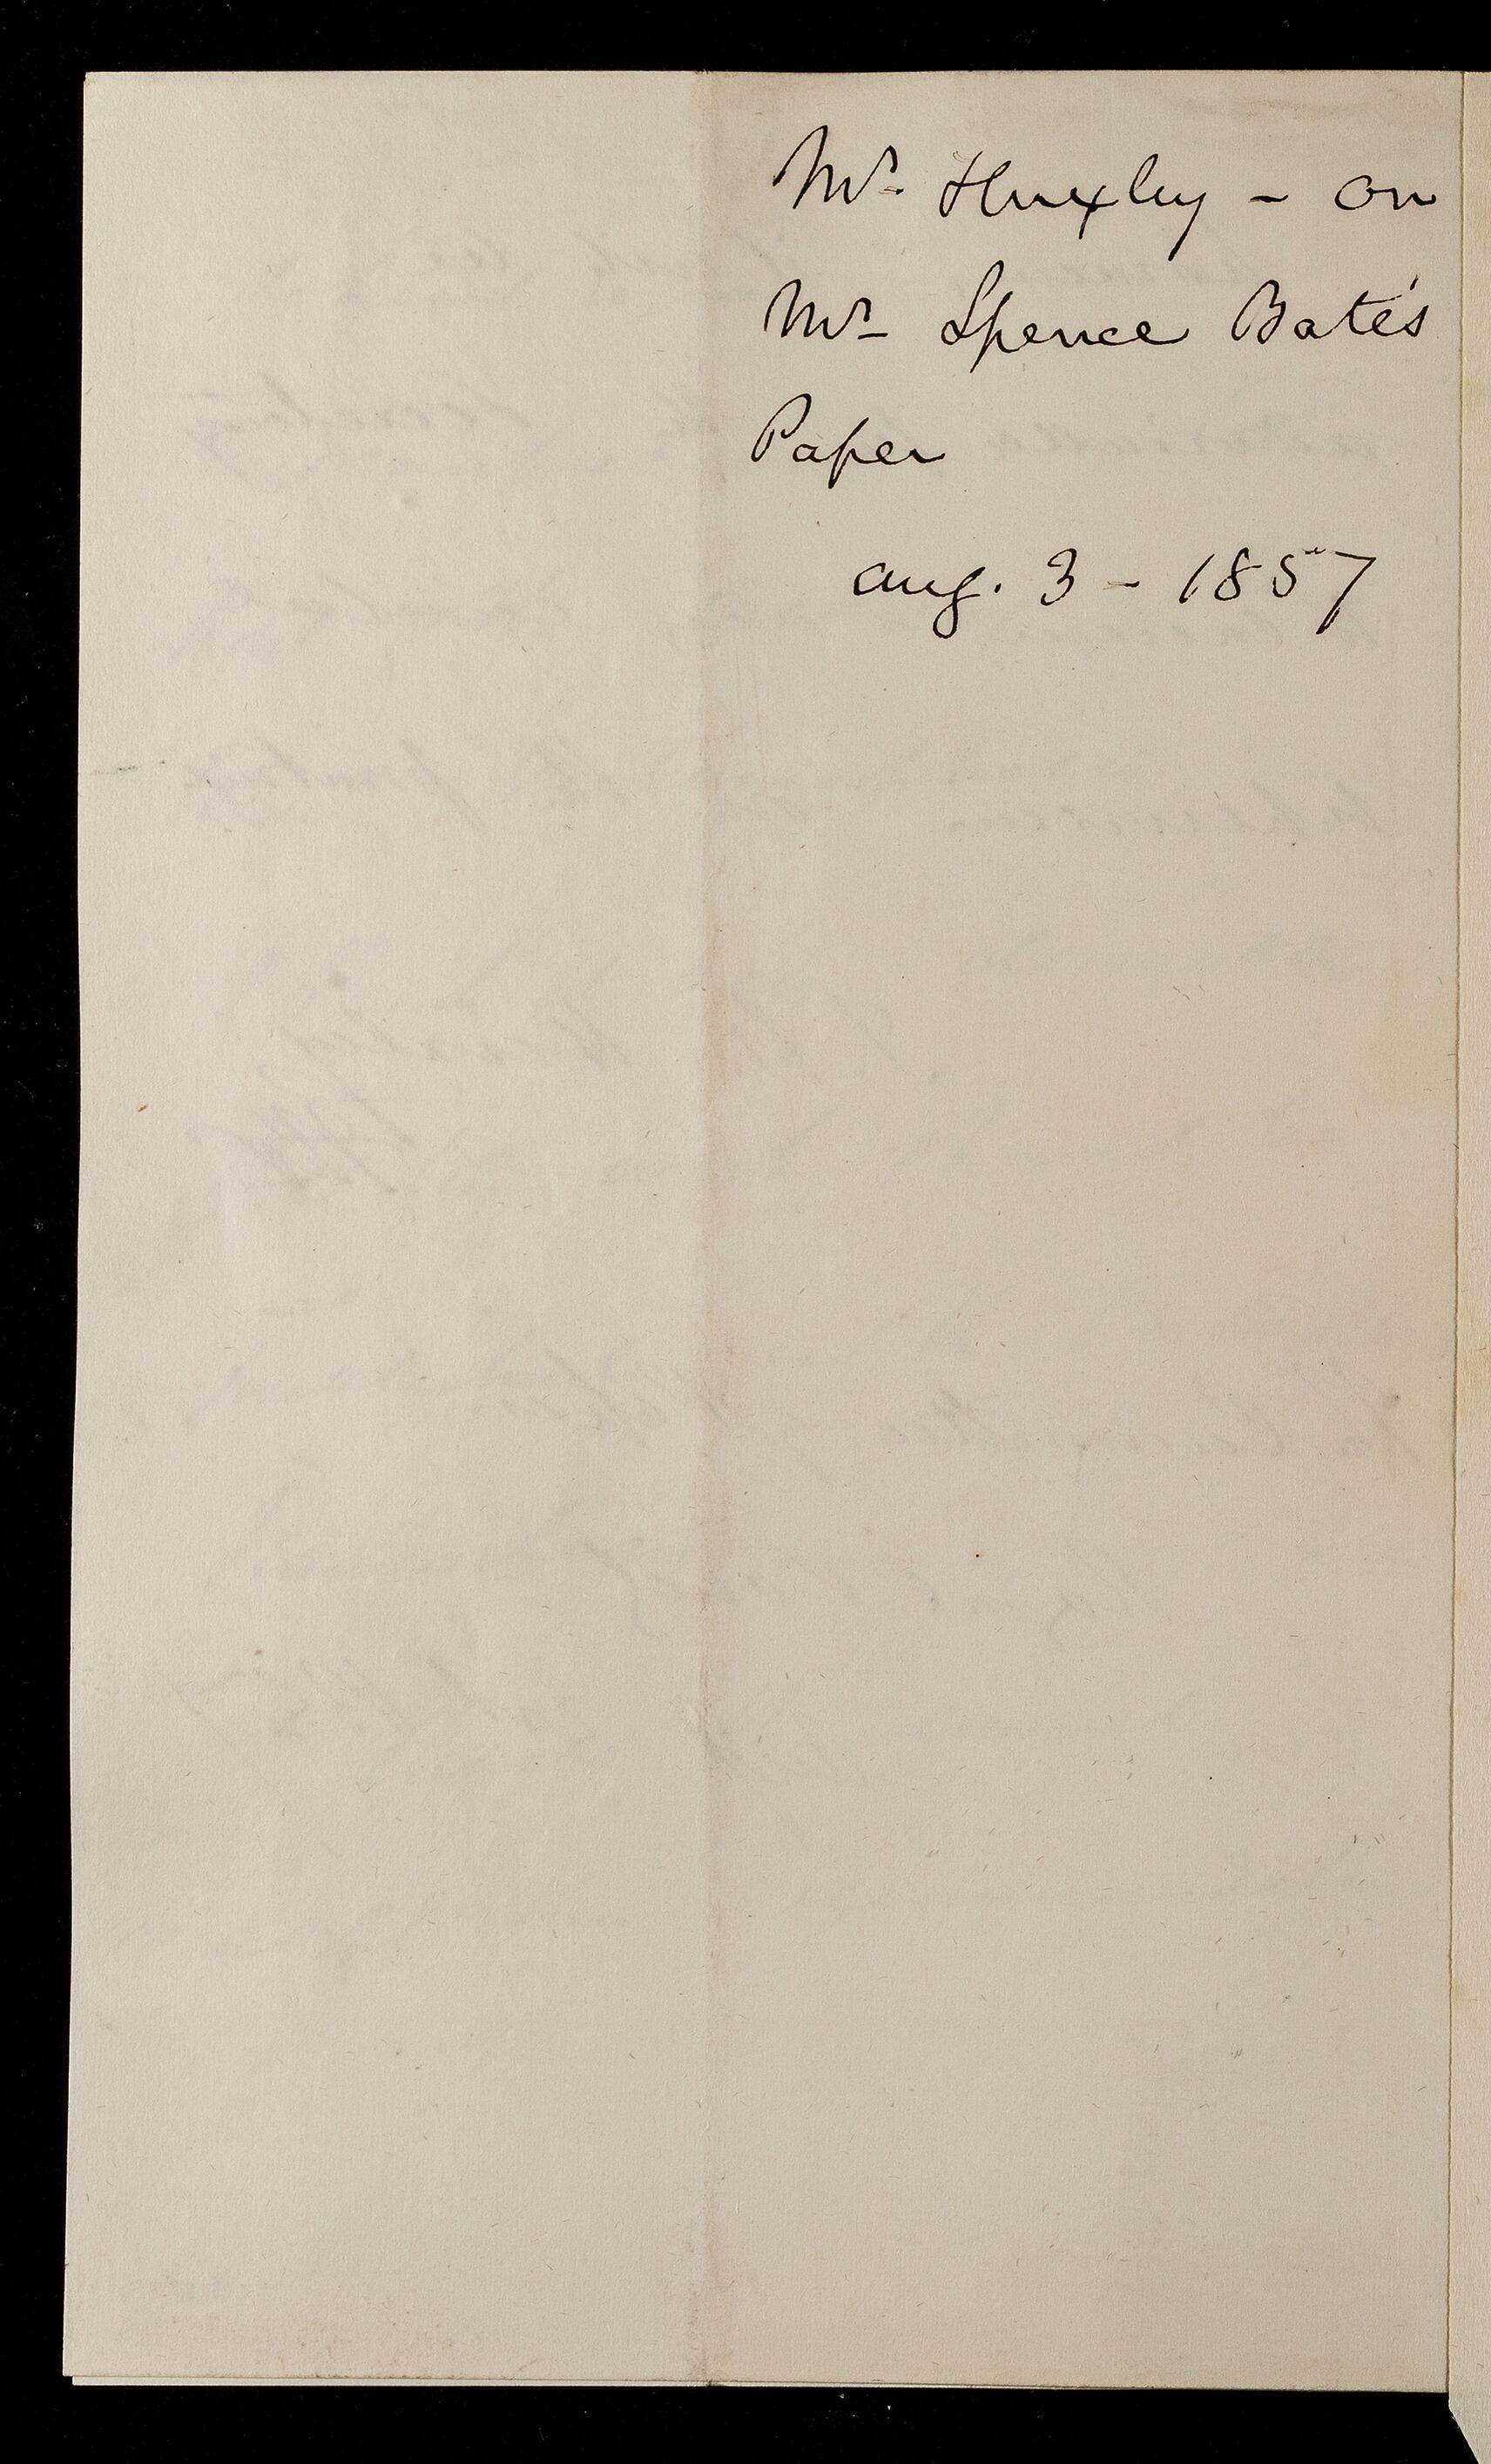 Mr. Huxley - on
Mr Spence Bate's
Paper
Aug. 3 - 1857